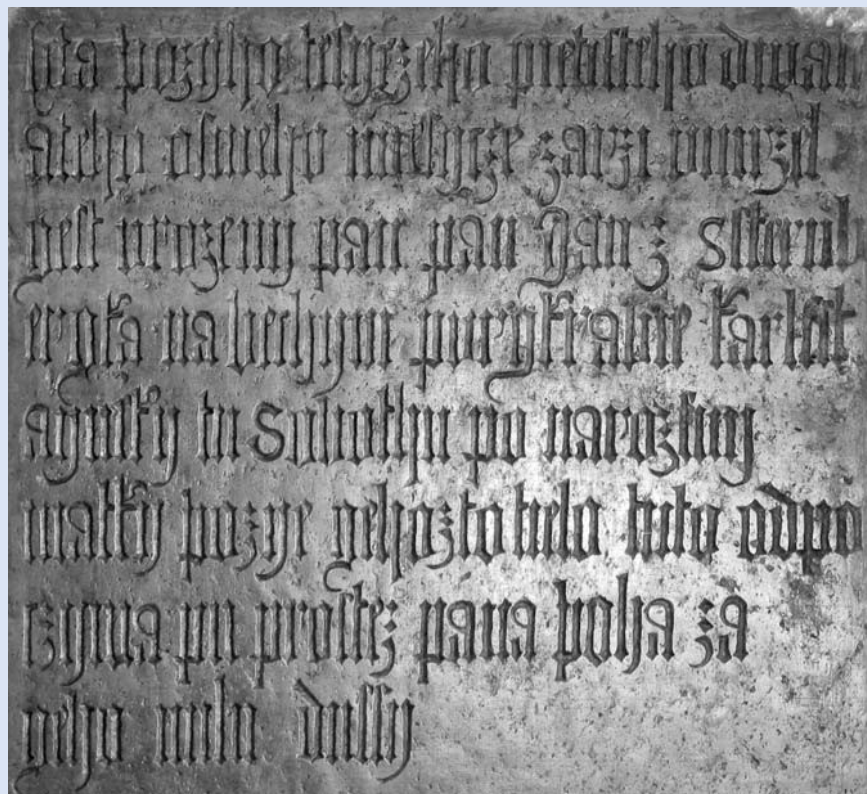 leta bozyho tisyczeho pietisteho dwau
ateho osmeho miesycze zarzi vmrzel
gest urozeny pan pan Jan z Ssternb
ergka na bechyni purgkrabie karlsst
aynsky tu Subothu po narozeny
matky bozye gehozto tielo tuto odpo
czywa pn prostez pana boha za
geho milu dussy